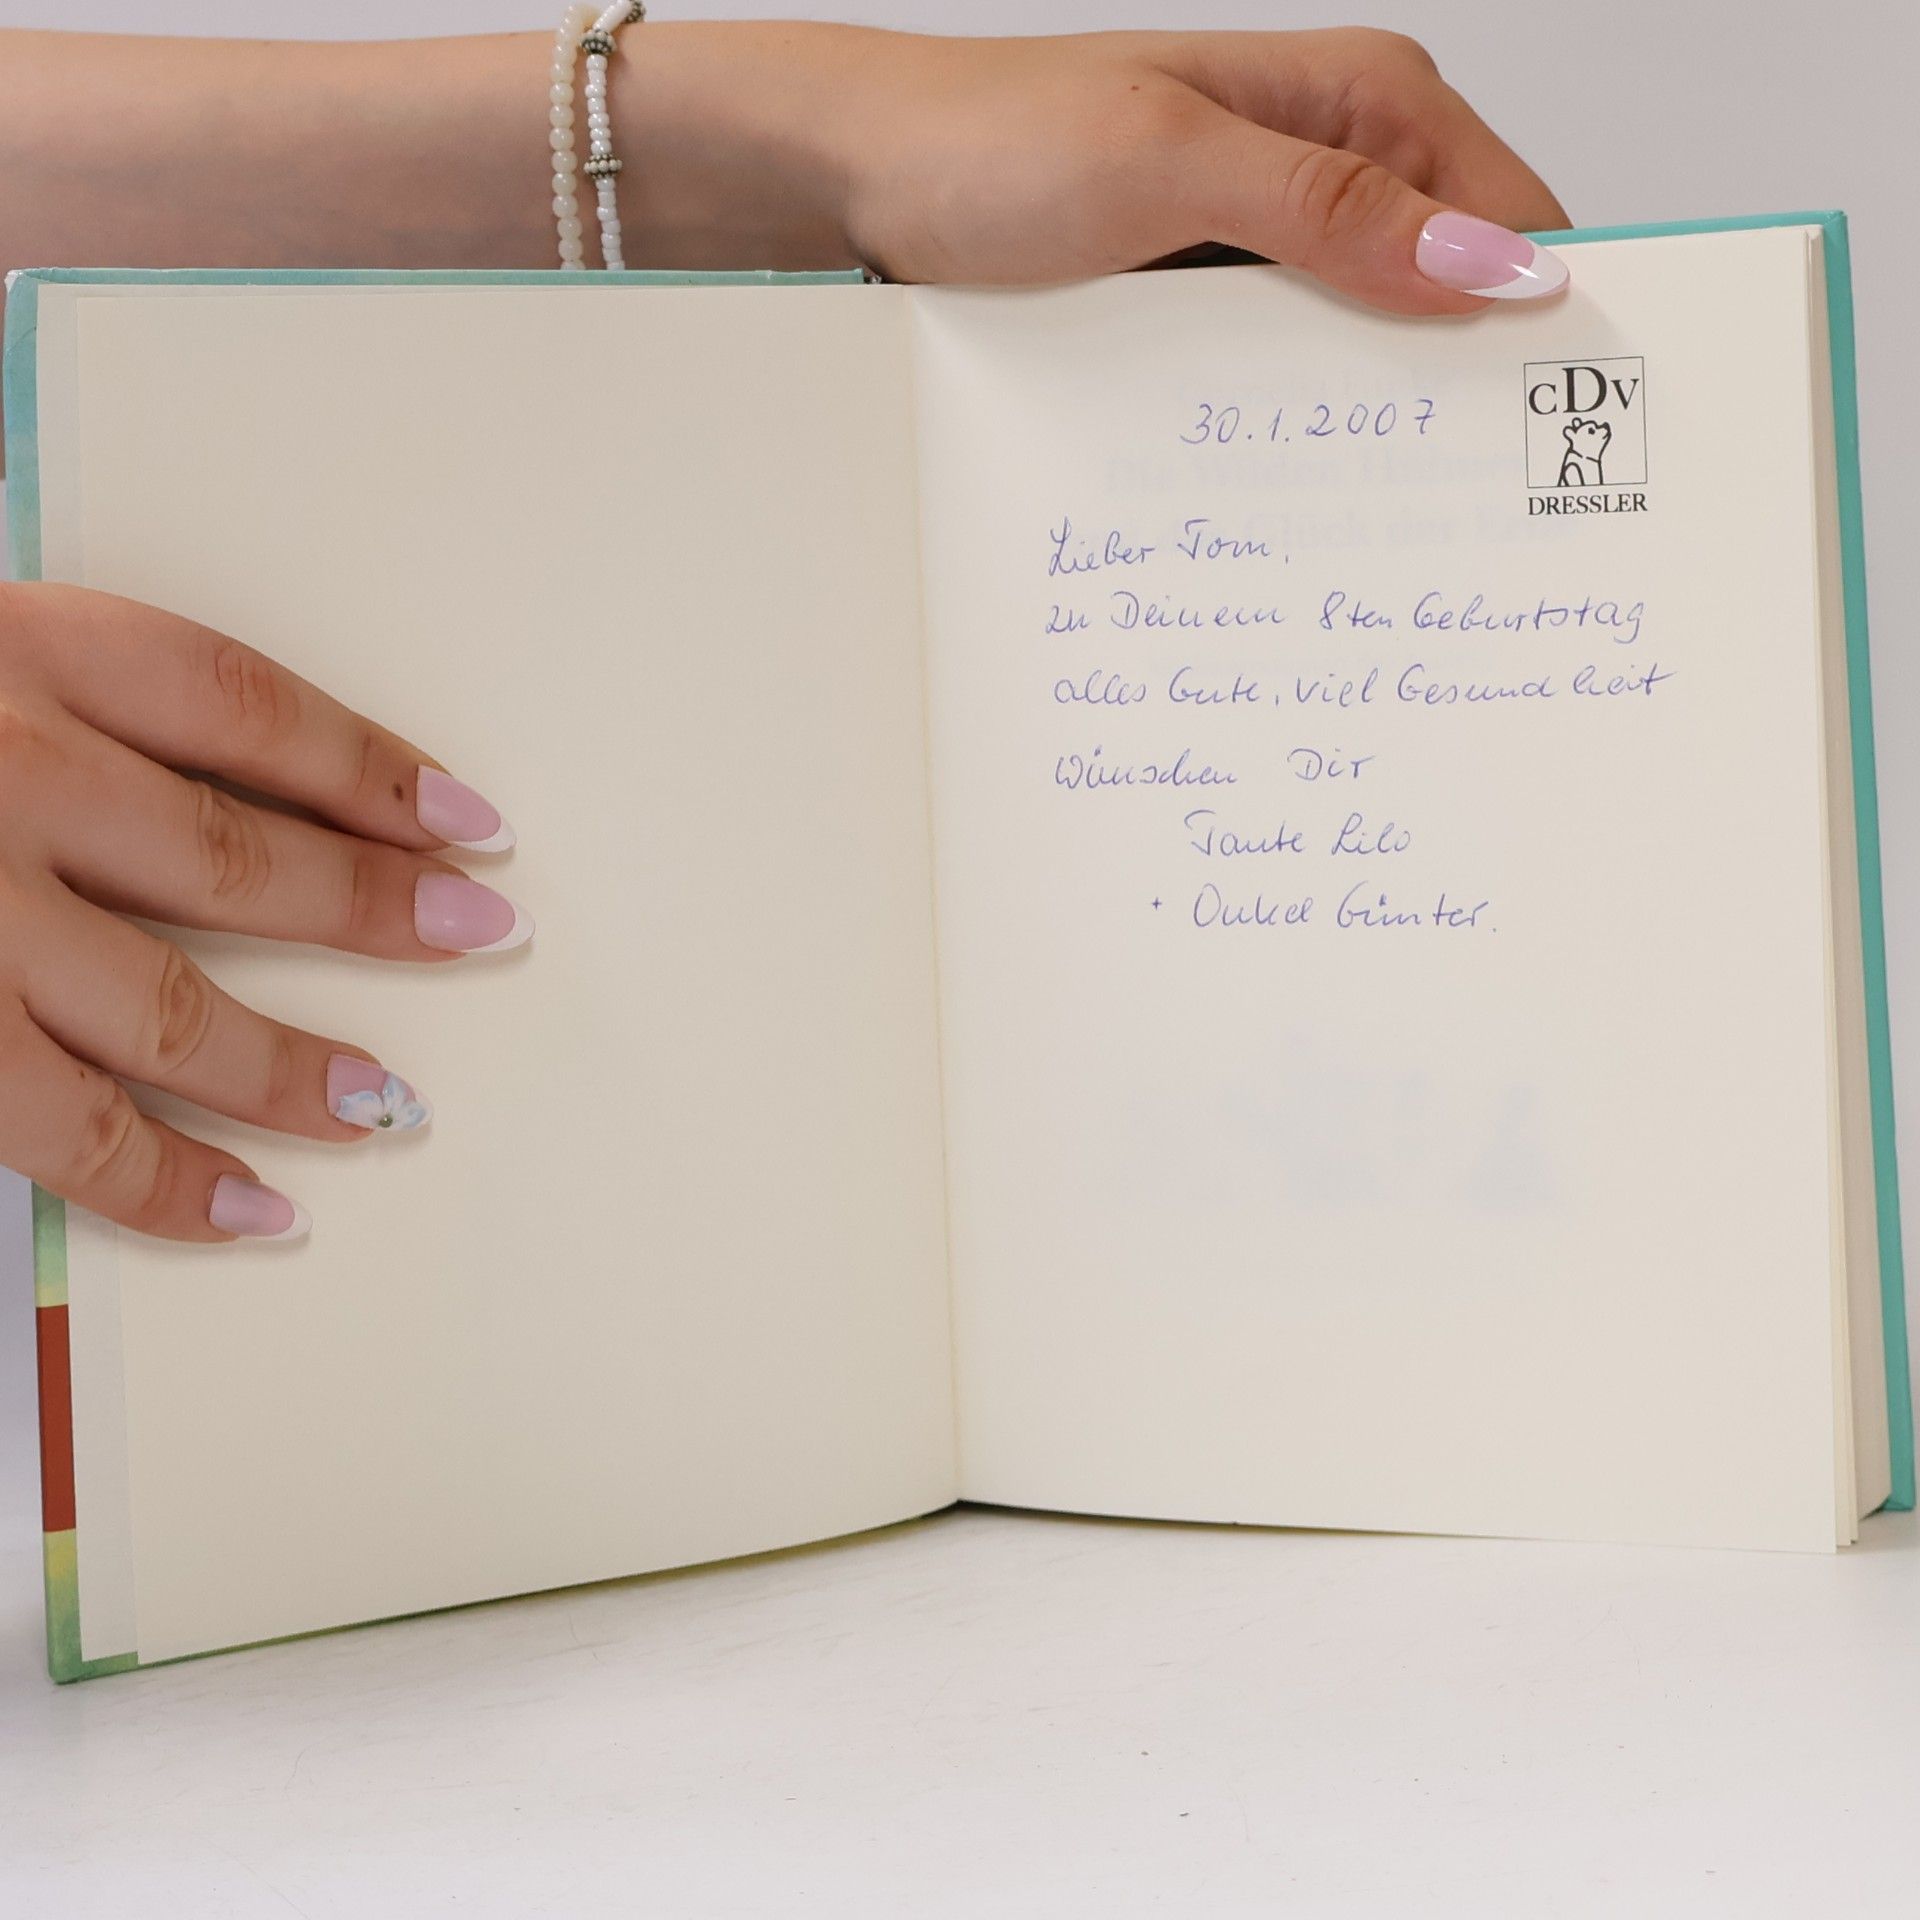 CDV
DRESSLER
30.1.2007
Lieber Tom,
zu Deinem 8ten Geburtstag
alles Gute, viel Gesundheit
wünschen Dir
Tante Lilo
+ Onkel Günter.